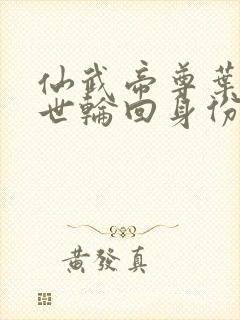 仙武帝尊葉
世輪回身份
黃發真